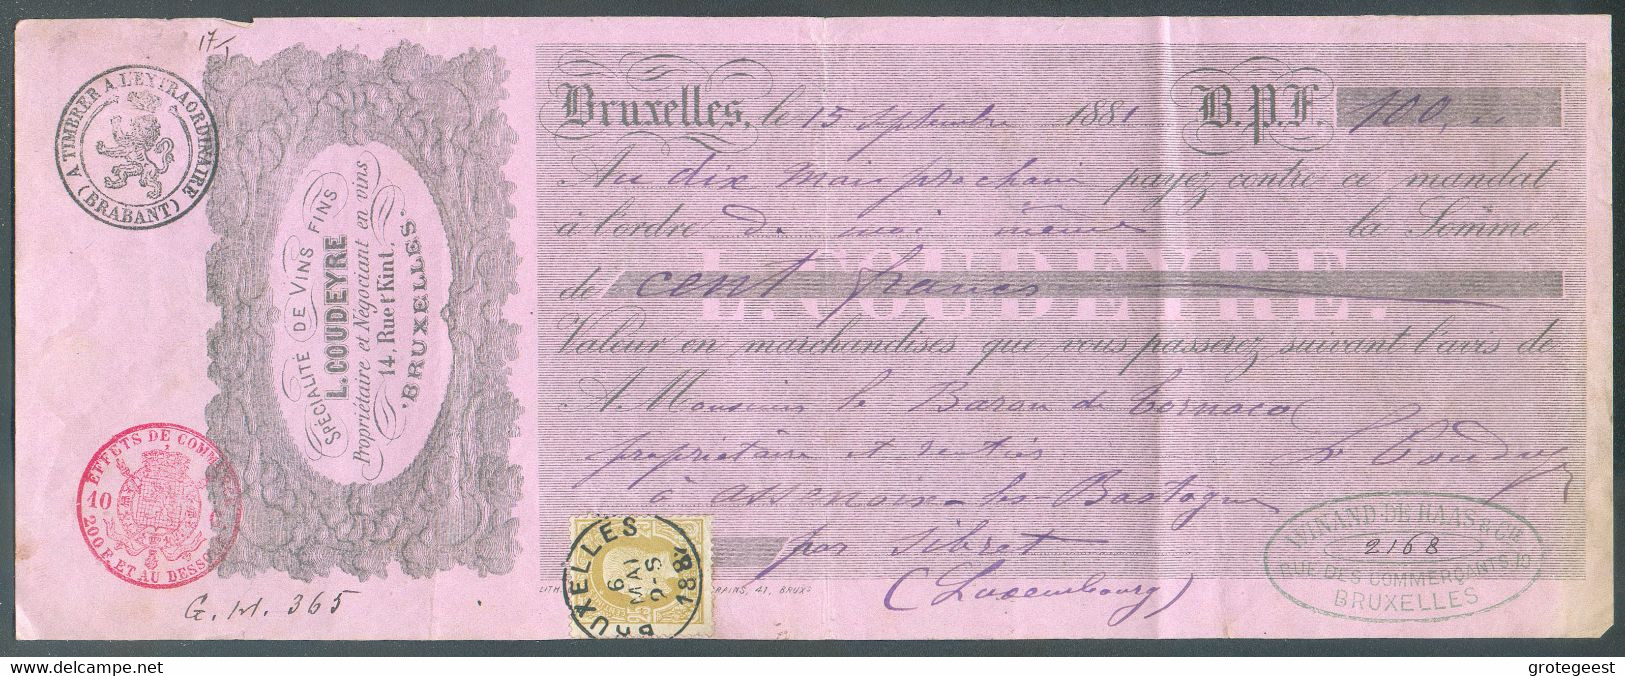 17/1
A TIMBRER A L'EXTRAORDINAIRE
(BRABANT)
SPÉCIALITÉ DE VINS FINS
L. COUDEYRE
Propriétaire et Négociant en vins
14, Rue t'Kint,
BRUXELLES.
Bruxelles, le 15 Septembre 1881 B.P.F. 100,
Au dix Mai prochain payez contre ce mandat
à l'ordre de moi même la Somme
de cent francs
L. COUDEYRE.
Valeur en marchandises que vous passerez suivant l'avis de
A Monsieur le Baron de Tornaco
propriétaire et rentier L. Coudeyre
à Assenois-les-Bastogne
par Sibret
(Luxembourg)
EFFETS DE COMM
10
200 F. ET AU DESSO
G. M. 365
BRUXELLES
6 MAI
2-S
1881
LITH RAINS, 41, BRUX
WINAND-DE HAAS & CIE
2168
RUE DES COMMERÇANTS, 10
BRUXELLES
delcampe.net
grotegeest